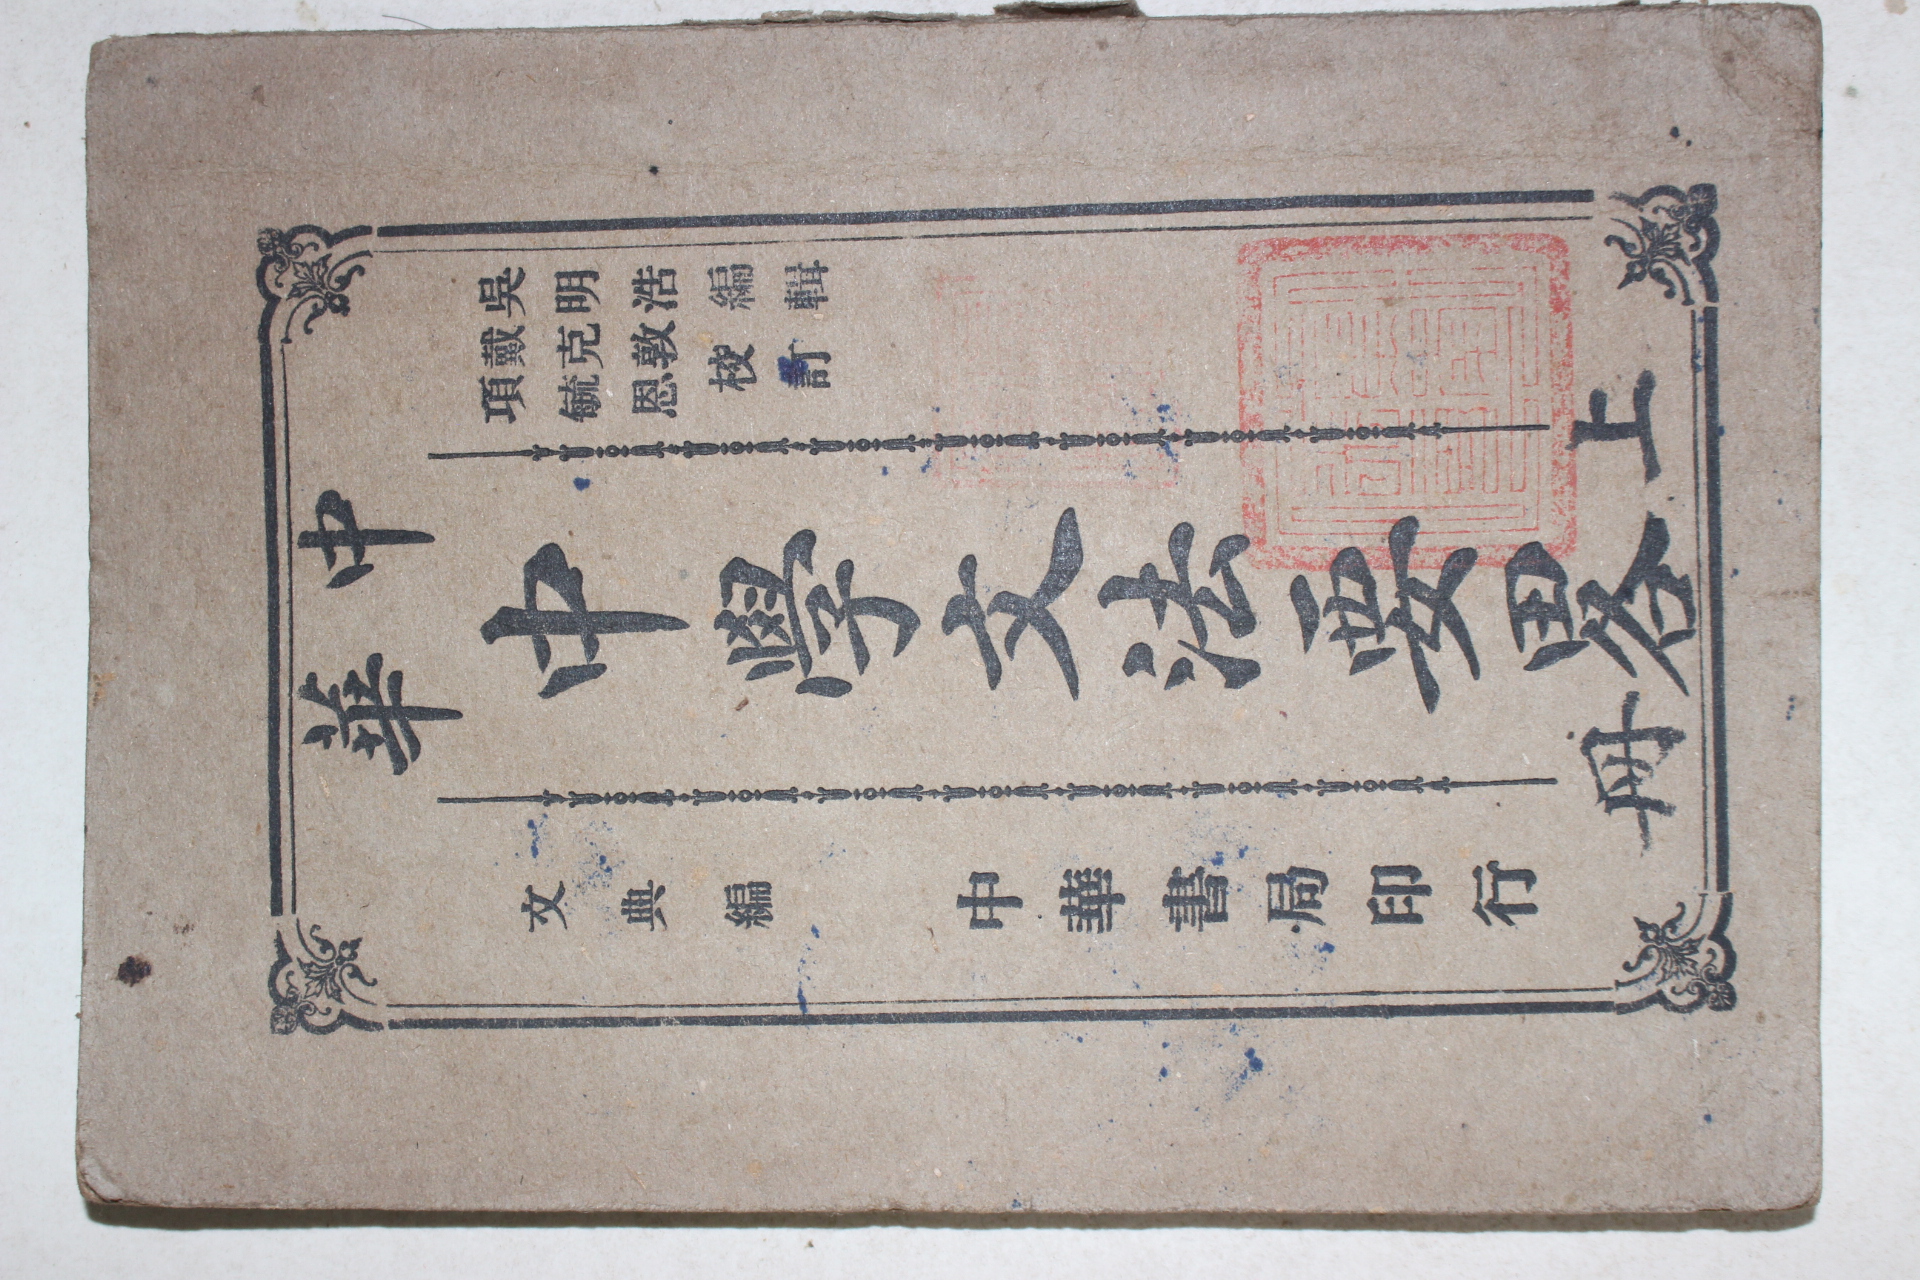 中華
吳明浩編輯
戴克敦
項毓恩
校訂
中學文法要略
上冊
文典編
中華書局印行